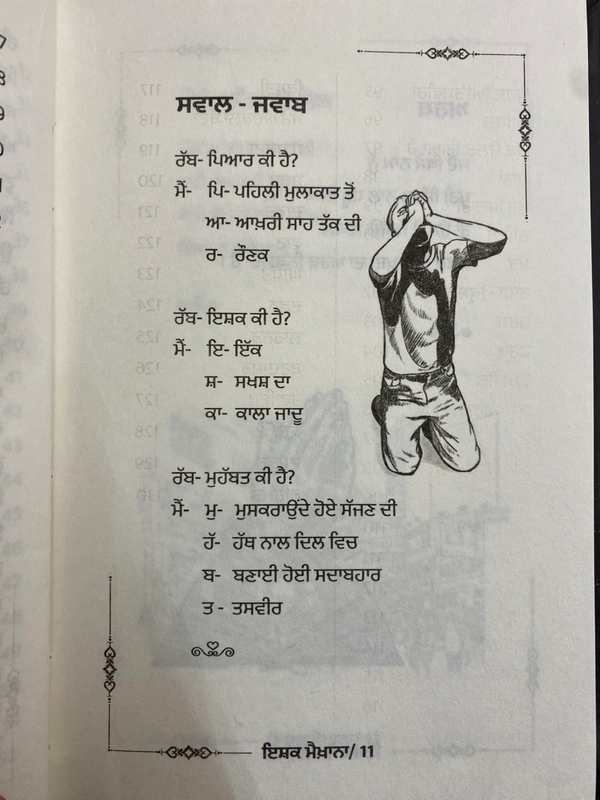 ਸਵਾਲ - ਜਵਾਬ
ਰੱਬ- ਪਿਆਰ ਕੀ ਹੈ?
ਮੈਂ- ਪਿ- ਪਹਿਲੀ ਮੁਲਾਕਾਤ ਤੋਂ
ਆ- ਆਖ਼ਰੀ ਸਾਹ ਤੱਕ ਦੀ
ਰ- ਰੌਣਕ
ਰੱਬ- ਇਸ਼ਕ ਕੀ ਹੈ?
ਮੈਂ- ਇ- ਇੱਕ
ਸ਼- ਸਖਸ਼ ਦਾ
ਕਾ- ਕਾਲਾ ਜਾਦੂ
ਰੱਬ- ਮੁਹੱਬਤ ਕੀ ਹੈ?
ਮੈਂ- ਮੁ- ਮੁਸਕਰਾਉਂਦੇ ਹੋਏ ਸੱਜਣ ਦੀ
ਹੱ- ਹੱਥ ਨਾਲ ਦਿਲ ਵਿਚ
ਬ- ਬਣਾਈ ਹੋਈ ਸਦਾਬਹਾਰ
ਤ - ਤਸਵੀਰ
ਇਸ਼ਕ ਮੈਖ਼ਾਨਾ/ 11